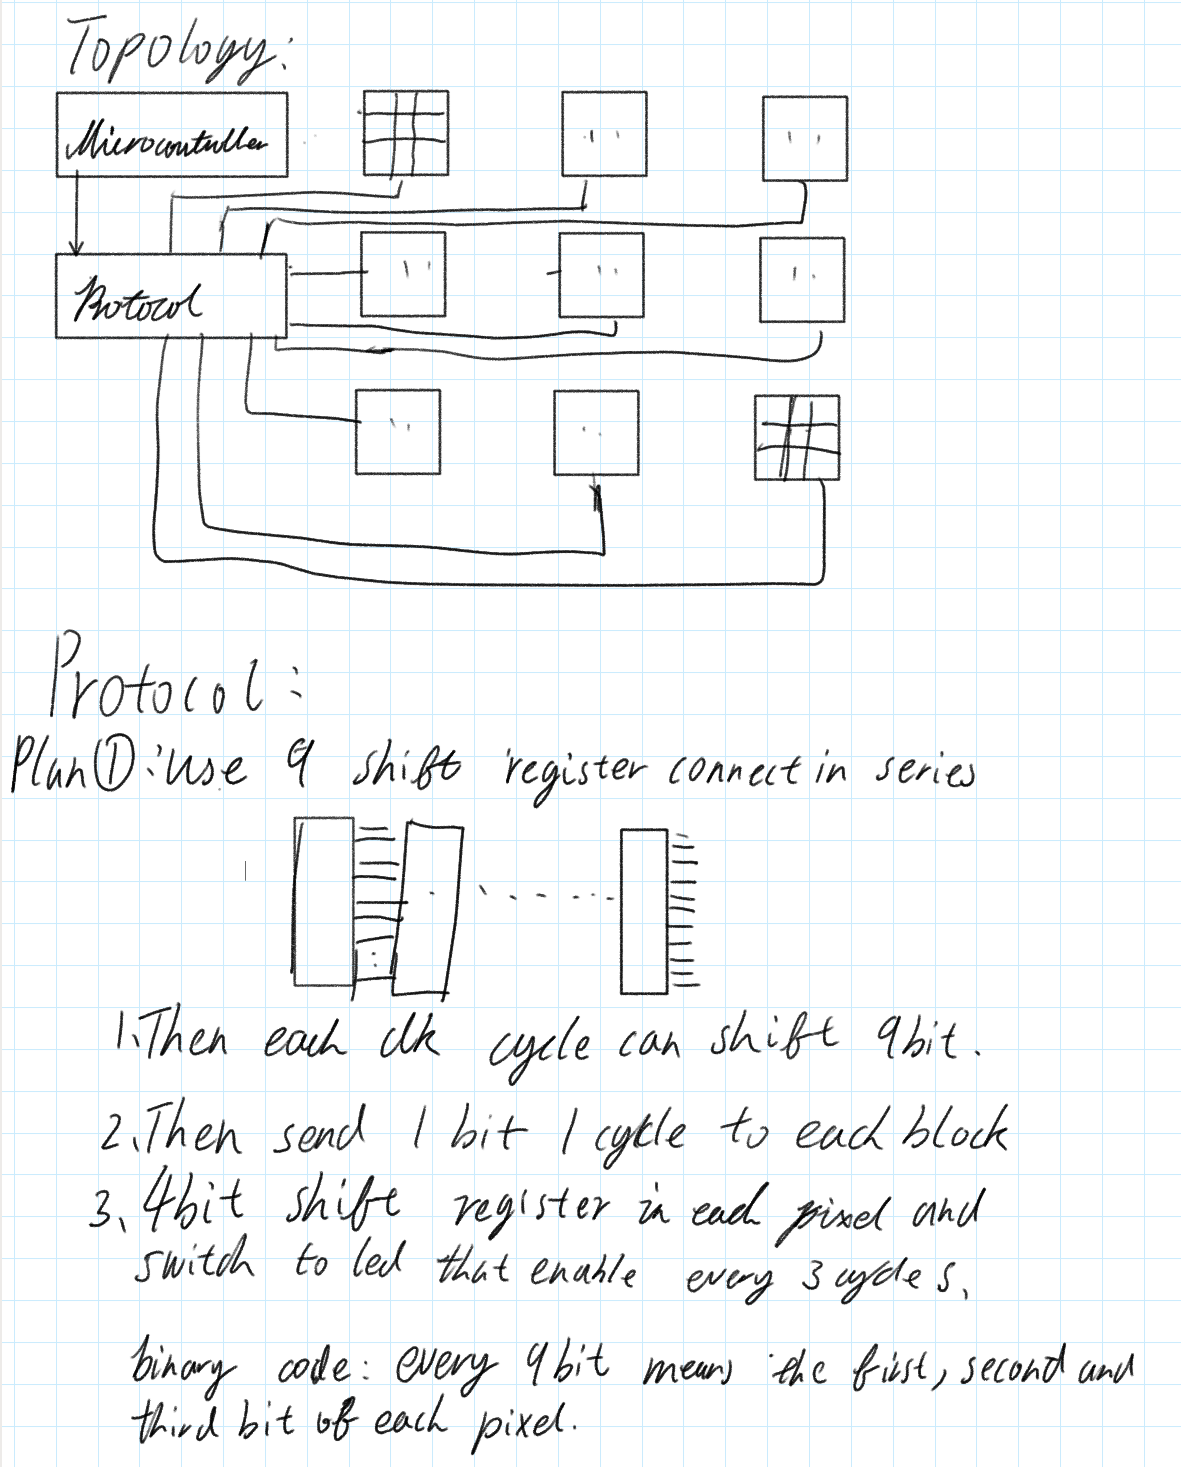 Topology:
Microcontroller
Protocol
Protocol:
Plan①: use 9 shift register connect in series
1. Then each clk cycle can shift 9bit.
2. Then send 1 bit 1 cycle to each block
3. 4bit shift register in each pixel and
switch to led that enable every 3 cycles.
binary code: every 9bit means the first, second and
third bit of each pixel.